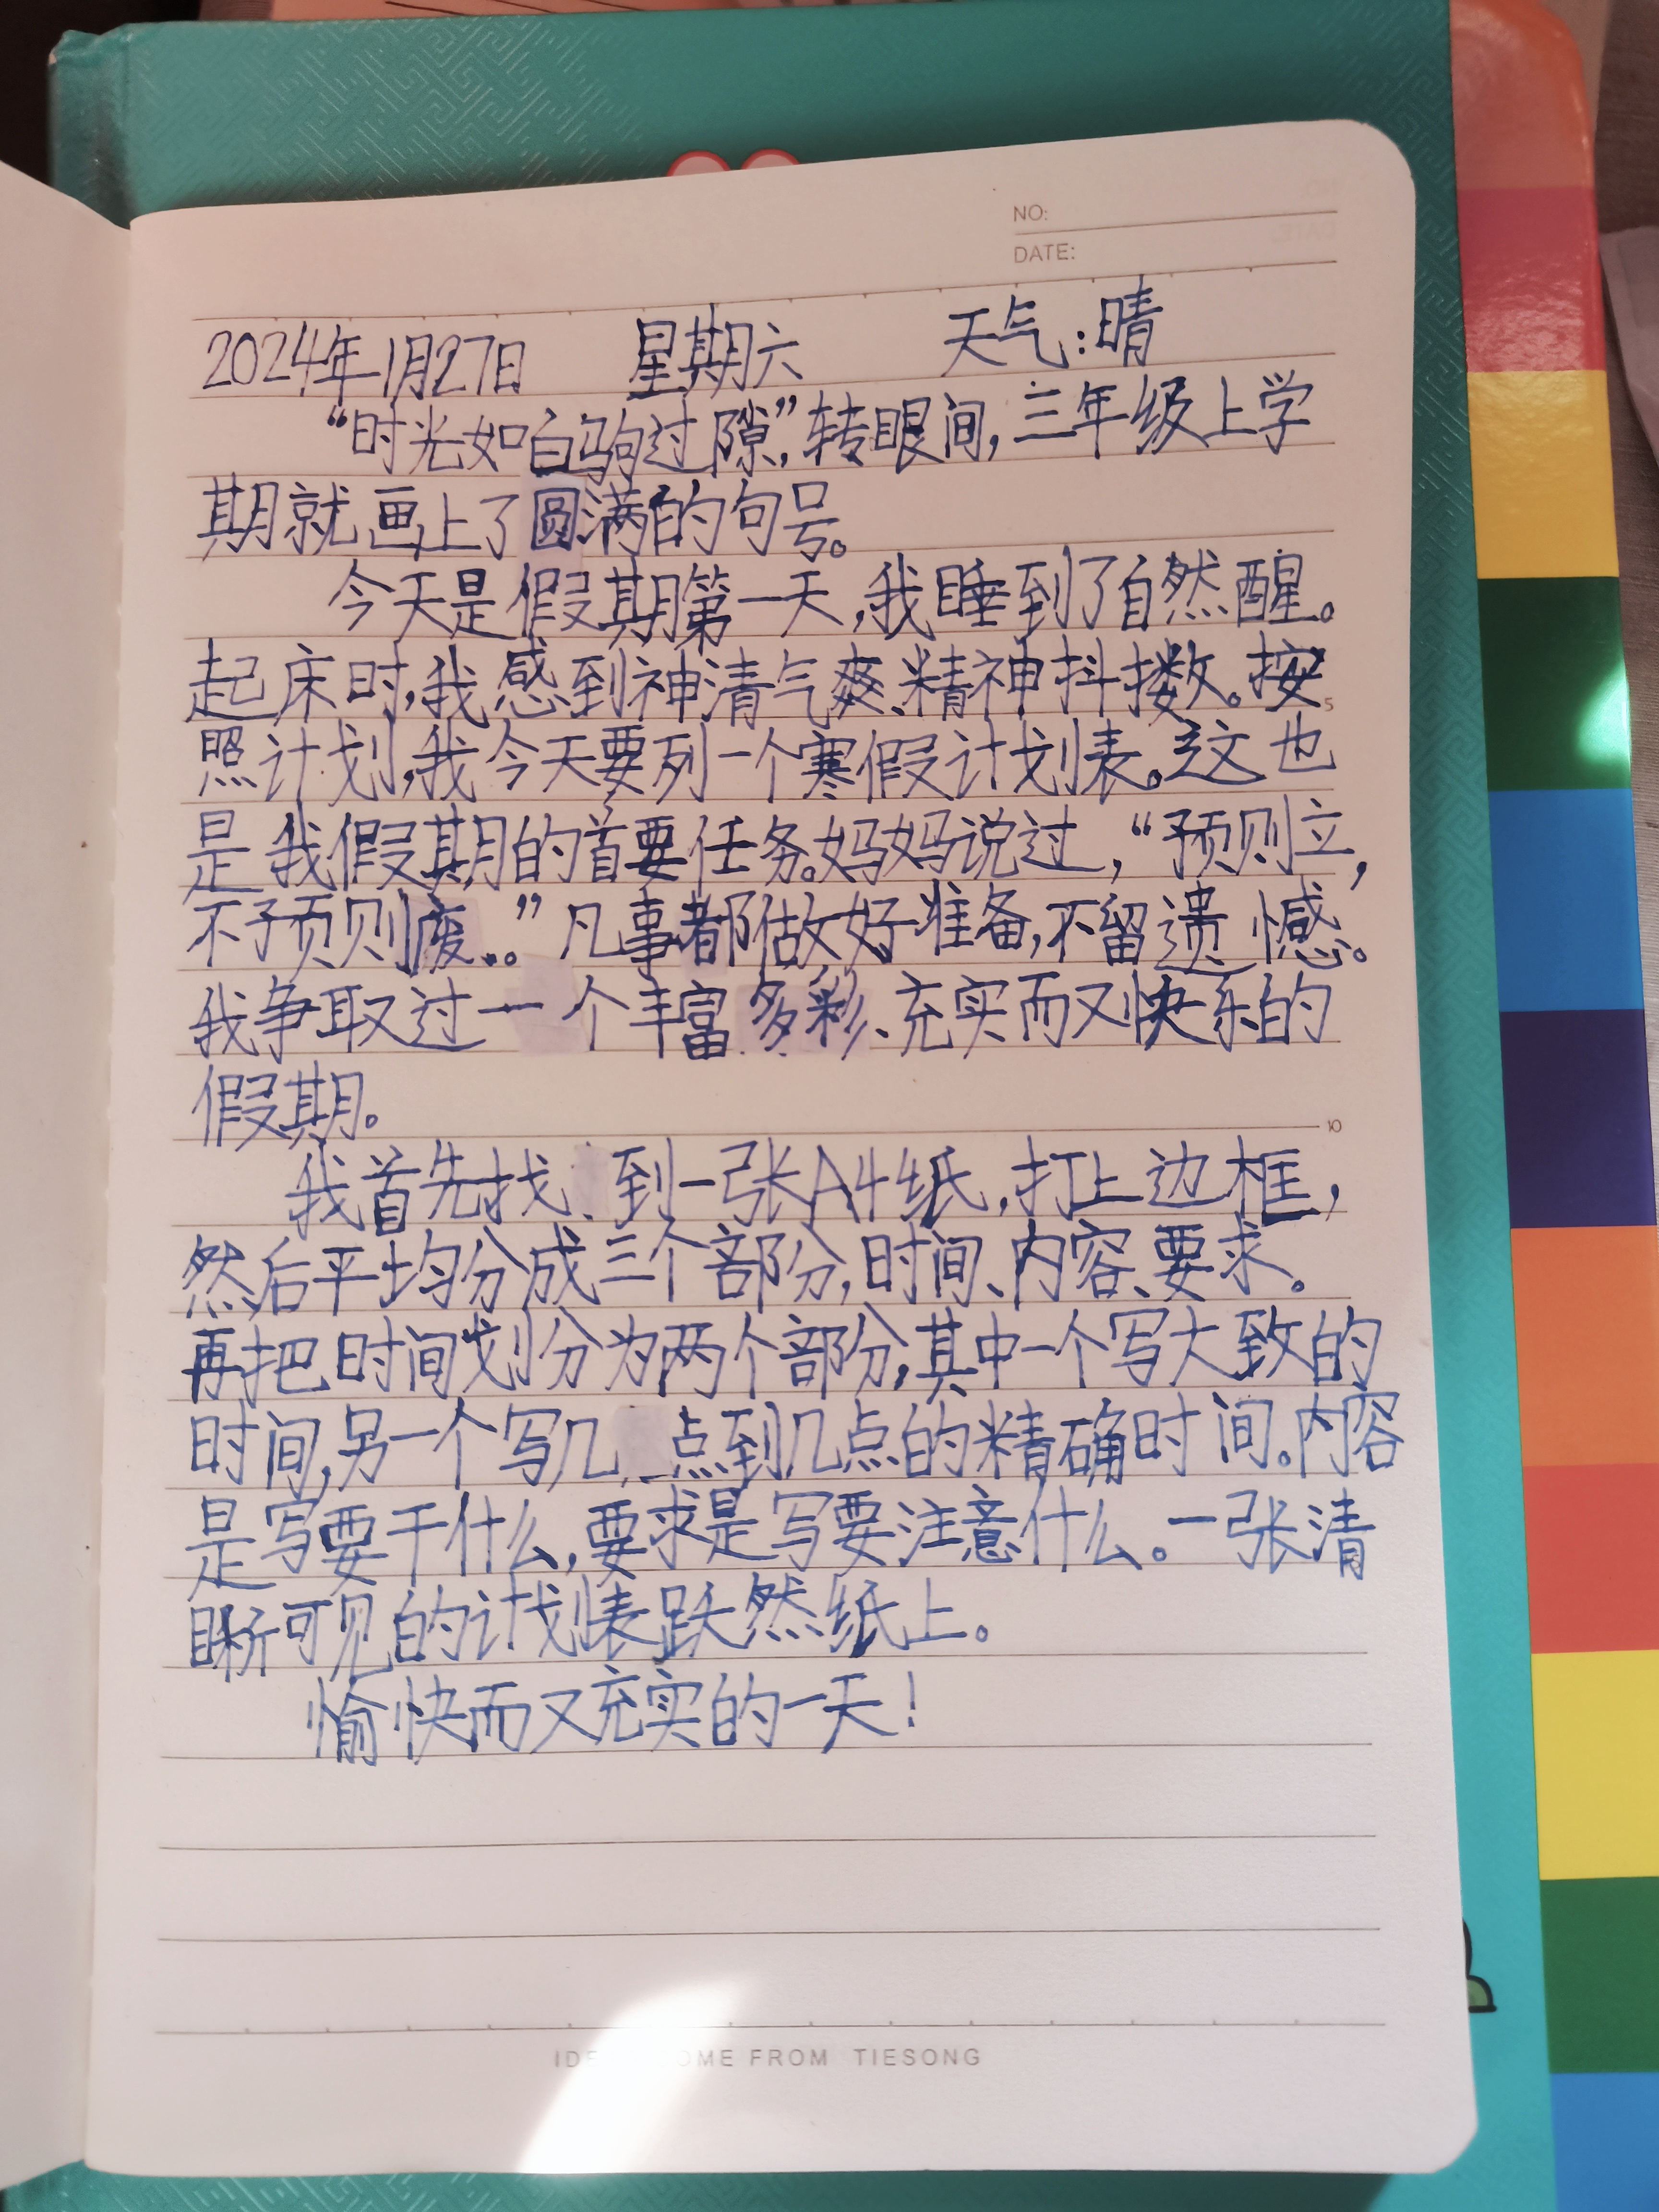 NO:
DATE:
2024年1月27日 星期六 天气:晴
“时光如白驹过隙”,转眼间,三年级上学
期就画上了圆满的句号。
今天是假期第一天,我睡到了自然醒。
起床时,我感到神清气爽、精神抖擞。按
5
照计划,我今天要列一个寒假计划表。这也
是我假期的首要任务。妈妈说过,“预则立,
不予预则废..。”凡事都做好准备,不留遗憾。
我争取过一个丰富多彩、充实而又快乐的
假期。
10
我首先找到一张A4纸,打上边框,
然后平均分成三个部分,时间、内容、要求。
再把时间划分为两个部分,其中一个写大致的
时间,另一个写几点到几点的精确时间。内容
是写要干什么,要求是写要注意什么。一张清
晰可见的计划表跃然纸上。
愉快而又充实的一天!
OME FROM TIESONG